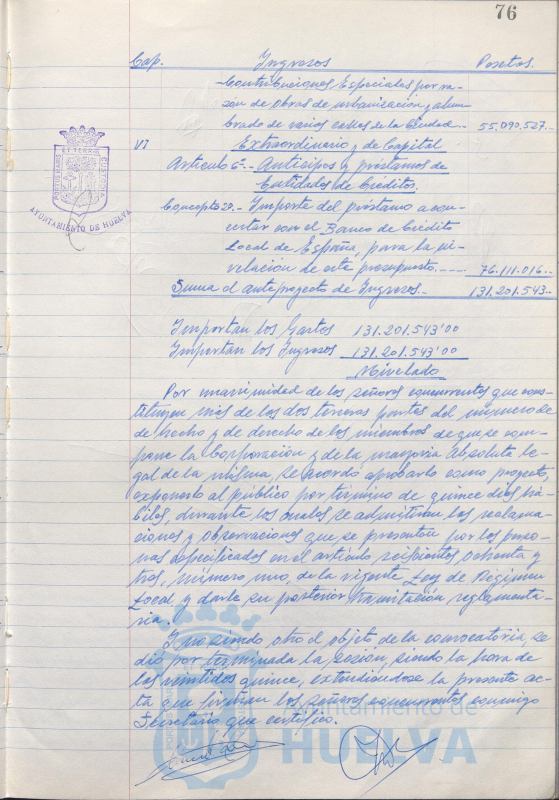 76
Cap. Ingresos Pesetas.
Contribuciones Especiales por ra-
zon de obras de urbanización y alum-
brado de varios calles de la Ciudad.. 55.090.527..
VI Extraordinario y de Capital
Artículo 6º.- Anticipos y préstamos de
Entidades de Créditos.
Concepto 20.- Importe del préstamo a con-
certar con el Banco de Crédito
Local de España, para la ni-
velación de este presupuesto.---- 76.111.016..
Suma el anteproyecto de Ingresos.- 131.201.543..
Importan los Gastos 131.201.543'00
Importan los Ingresos 131.201.543'00
Nivelado
Por unanimidad de los señores concurrentes que cons-
tituyen más de las dos terceras partes del número de
de hecho y de derecho de los miembros de que se com-
pone la Corporación y de la mayoria absoluta le-
gal de la misma, se acordó aprobarlo como proyecto,
exponerlo al público por término de quince dias há-
biles, durante los cuales se admitiran las reclama-
ciones y observaciones que se presenten por las perso-
nas especificadas en el artículo seiscientos ochenta y
tres, número uno, de la vigente Ley de Régimen
Local y darle su posterior tramitación reglamenta-
ria.
Y no siendo otro el objeto de la convocatoria, se
dió por terminada la sesión, siendo la hora de
las veintidos quince, extendiéndose la presente ac-
ta que firman los señores concurrentes conmigo
Secretario que certifico.
PORTUS MARIS ET TERRAE CUSTODIA
AYUNTAMIENTO DE HUELVA
Ayuntamiento de
HUELVA